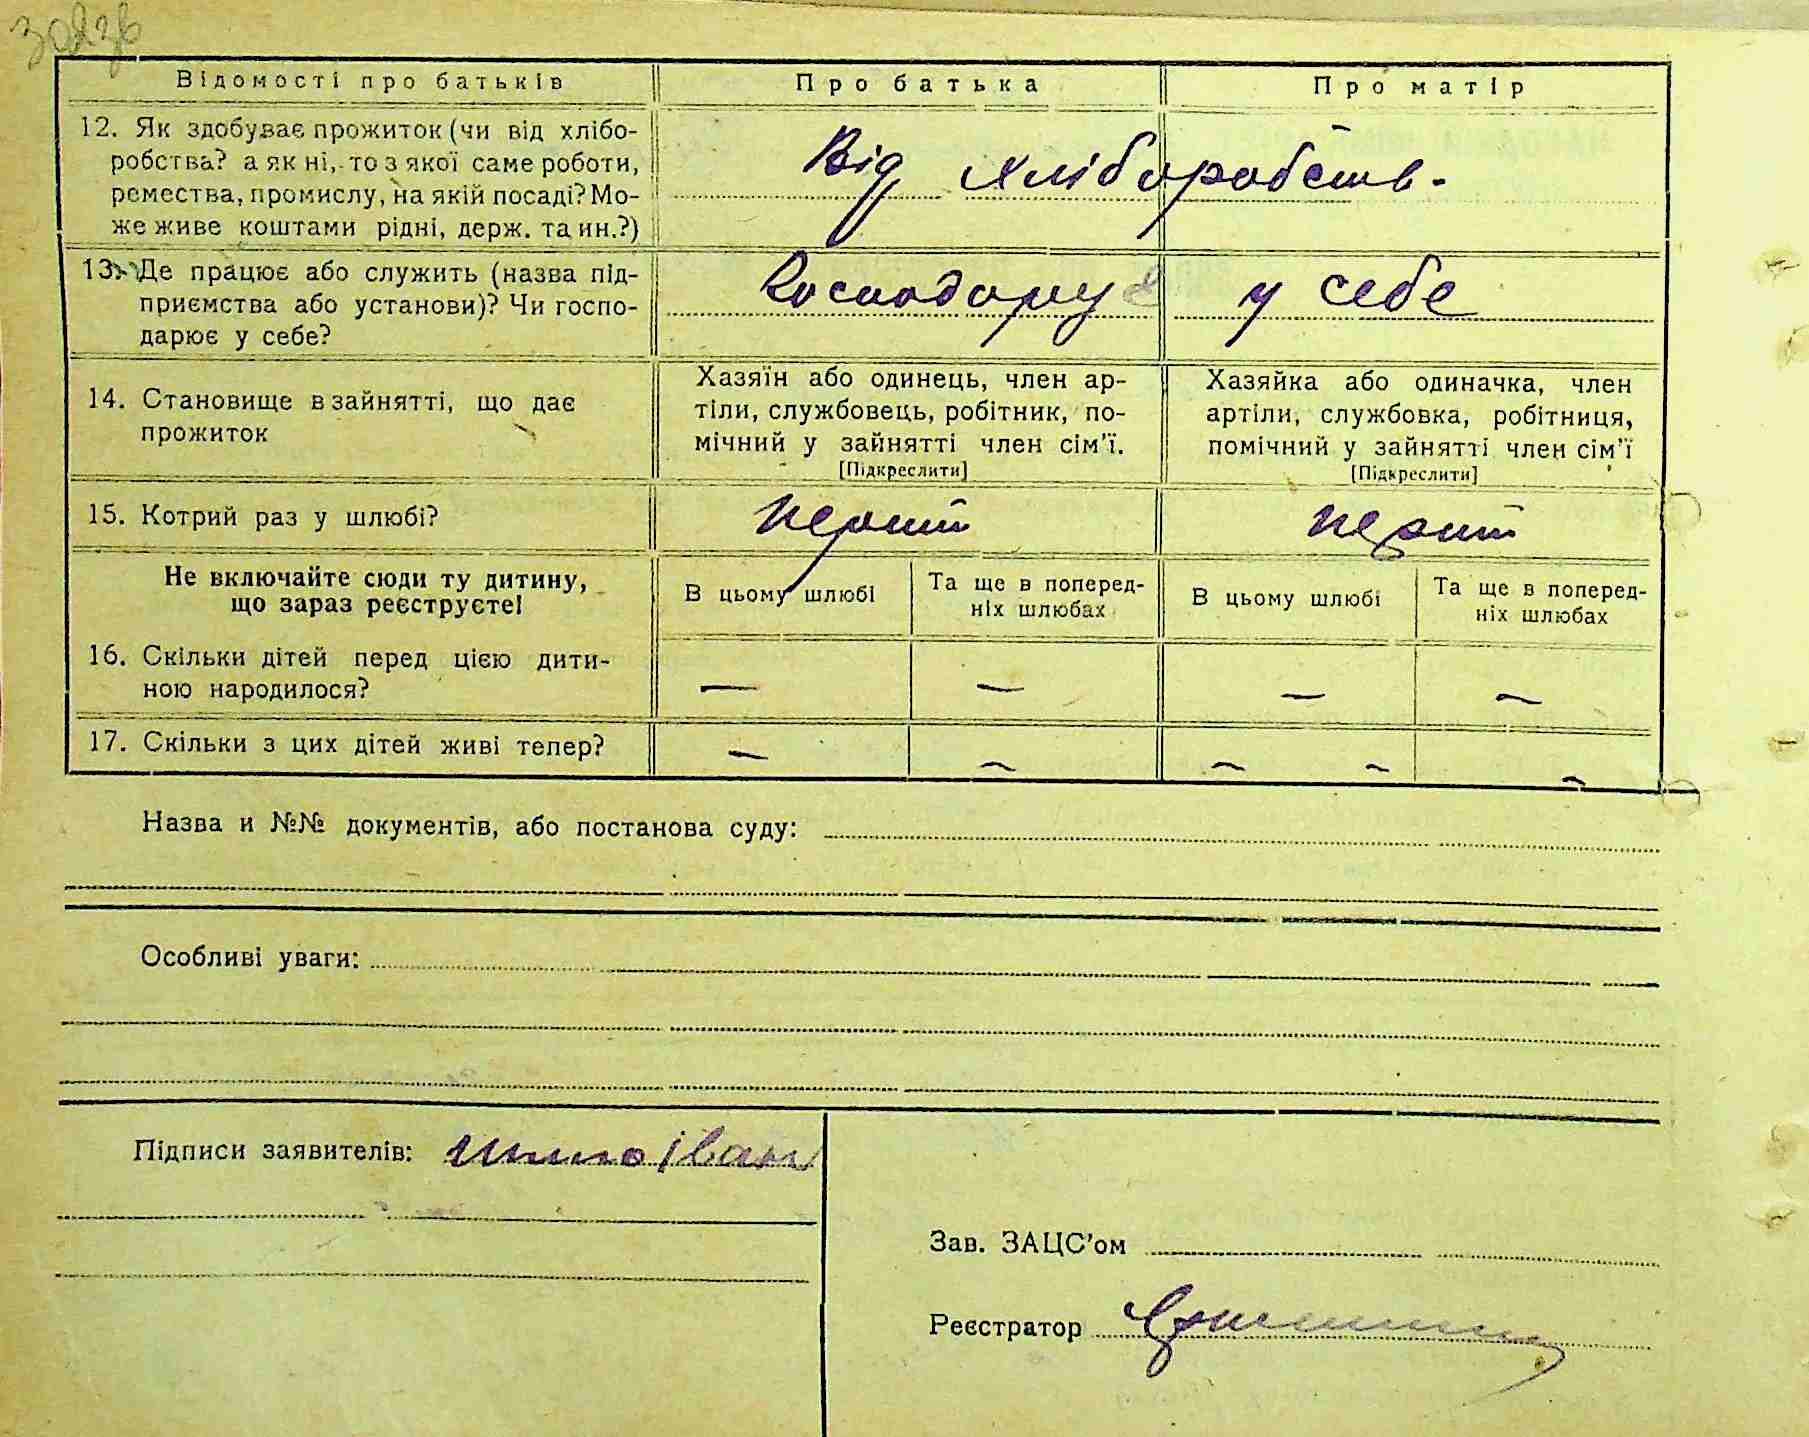 Відомості про батьків Про батька Про матір
12. Як здобуває прожиток (чи від хлібо-
робства? а як ні, то з якої саме роботи,
ремества, промислу, на якій посаді? Мо-
же живе коштами рідні, держ. та ин.?)
Від хліборобств.
13. Де працює або служить (назва під-
приємства або установи)? Чи госпо-
дарює у себе?
Господарує у себе
14. Становище в зайнятті, що дає
прожиток
Хазяїн або одинець, член ар-
тіли, службовець, робітник, по-
мічний у зайнятті член сім'ї.
[Підкреслити]
Хазяйка або одиначка, член
артіли, службовка, робітниця,
помічний у зайнятті член сім'ї
[Підкреслити]
15. Котрий раз у шлюбі? перший перший
Не включайте сюди ту дитину,
що зараз реєструєте!
В цьому шлюбі
Та ще в поперед-
ніх шлюбах
В цьому шлюбі
Та ще в поперед-
ніх шлюбах
16. Скільки дітей перед цією дити-
ною народилося?
— — — —
17. Скільки з цих дітей живі тепер?
— — — — —
Назва и №№ документів, або постанова суду:
Особливі уваги:
Підписи заявителів: Іван
Зав. ЗАЦС'ом
Реєстратор